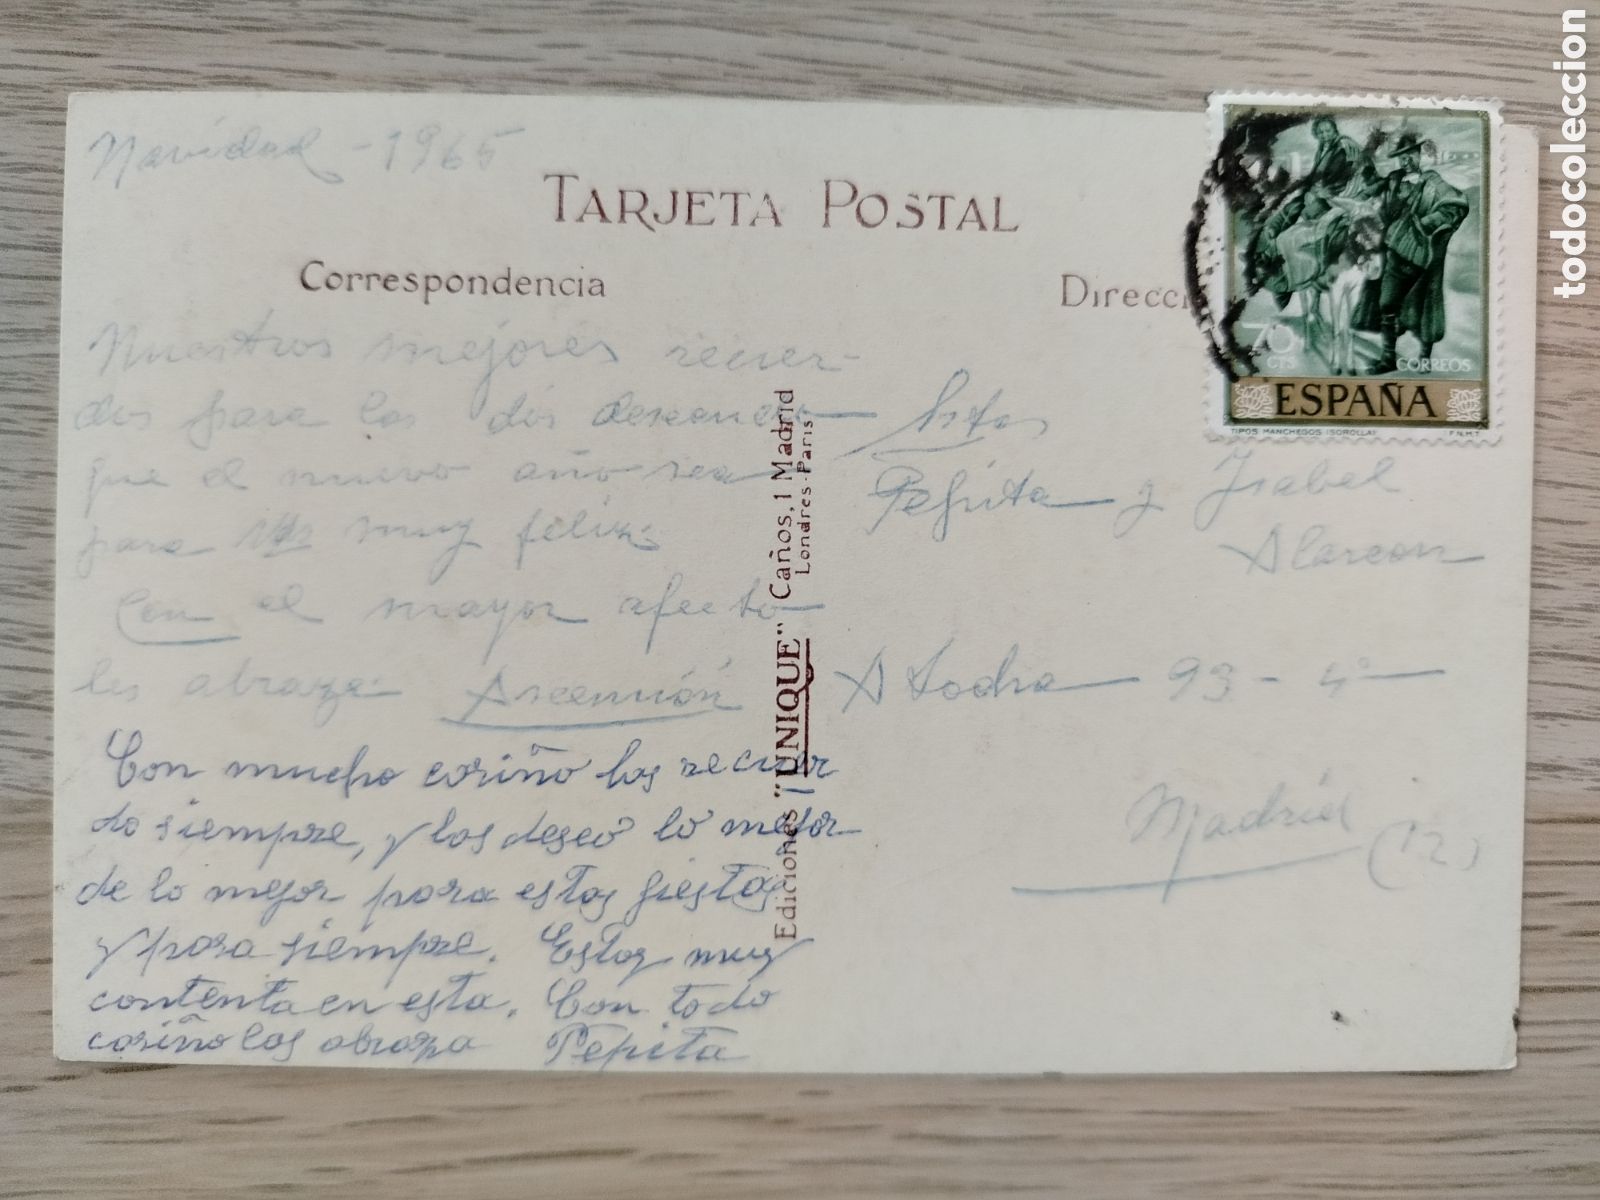 Navidad - 1965
TARJETA POSTAL
Correspondencia
Direcci
Nuestros mejores recuer-
dos para las dos deseando
que el nuevo año sea
para Vds muy feliz.
Con el mayor afecto
les abraza Ascensión
Con mucho cariño las recuer
do siempre, y las deseo lo mejor
de lo mejor para estas fiestas
y para siempre. Estoy muy
contenta en esta. Con todo
cariño las abraza Pepita
Ediciones "UNIQUE" Caños, 1 Madrid
Londres-Paris
Srtas
Pepita y Isabel
Alarcon
Atocha 93 - 4º
Madrid (12)
70
CTS
CORREOS
ESPAÑA
TIPOS MANCHEGOS (SOROLLA)
F.N.M.T.
todocoleccion